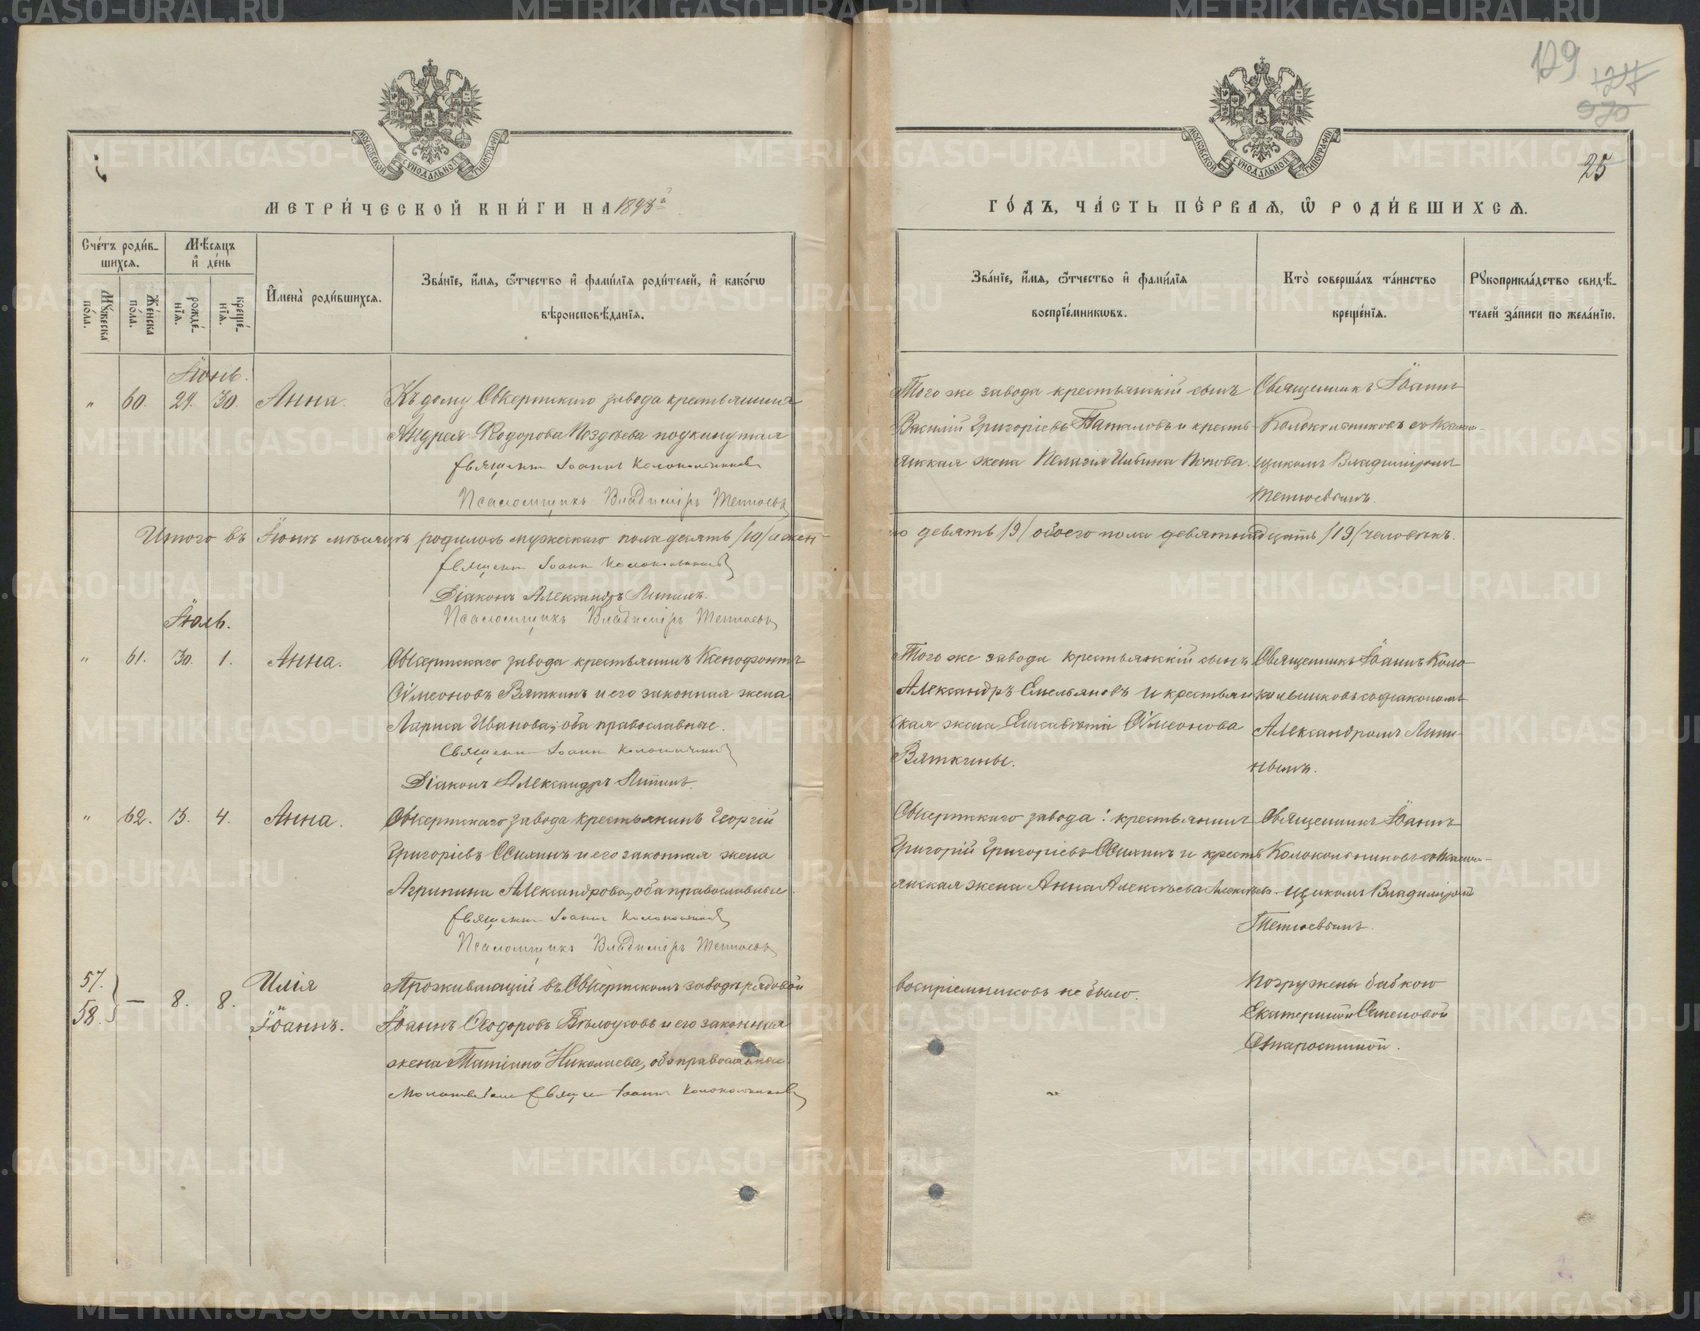 129
25
МЕТРИ́ЧЕСКОЙ КНИ́ГИ НА 1893й
ГО́ДЪ, ЧА́СТЬ ПЕ́РВАѦ, Ѡ҆ РОДИ́ВШИХСѦ.
Сче́тъ роди́в-
шихсѧ.
Мѣ́сѧцъ
и҆ де́нь
Мꙋ́жеска
по́ла.
Же́нска
по́ла.
рожде́-
нїѧ.
креще́-
нїѧ.
И҆мена̀ роди́вшихсѧ.
Зва́нїе, и҆́мѧ, ѻ҆́тчество и҆ фами́лїѧ роди́телей, и҆ како́гѡ
вѣроисповѣ́данїѧ.
Зва́нїе, и҆́мѧ, ѻ҆́тчество и҆ фами́лїѧ
воспрїе́мникѡвъ.
Кто̀ соверша́лъ та́инство
креще́нїѧ.
Рꙋкоприкла́дство свидѣ́-
телей за́писи по жела́нїю.
Іюнь.
" 60. 29. 30. Анна. Къ дому Сысертскаго завода крестьянина
Андрея Ѳедорова Поздѣева подкинутая
Священн Іоаннъ Колокольников
Псаломщикъ Владиміръ Тетюевъ
Того же завода крестьянскій сынъ
Василій Григорьевъ и кресть
янская жена Пелагія Ильина Попова.
Священникъ Іоаннъ
Колокольниковъ съ Псалом-
щикомъ Владиміромъ
Тетюевымъ.
Итого въ Іюнѣ мѣсяцѣ родилось мужескаго пола десять /10/ а жен-
го девять /9/ обоего пола девятнадцать /19/ человѣкъ.
Священн Іоанн Колокольников
Діаконъ Александръ Липинъ.
Псаломщикъ Владиміръ Тетюевъ
Іюль.
" 61. 30. 1. Анна. Сысертскаго завода крестьянинъ Ксенофонтъ
Сѵмеоновъ Вяткинъ и его законная жена
Лариса Иванова, оба православные.
Священн Іоанн Колокольников
Діаконъ Александръ Липинъ.
Того же завода крестьянскій сынъ
Александръ Емельяновъ и крестьян
ская жена Елисавета Сѵмеонова
Вяткины.
Священникъ Іоаннъ Коло
кольниковъ съ діакономъ
Александромъ Липи-
нымъ.
" 62. 3. 4. Анна. Сысертскаго завода крестьянинъ Георгій
Григорьевъ и его законная жена
Агрипина Александрова, оба православные.
Священн Іоанн Колокольников
Псаломщикъ Владиміръ Тетюевъ
Сысертскаго завода: крестьянинъ
Григорій Григорьевъ и кресть
янская жена Анна Алексѣева
Священникъ Іоаннъ
Колокольниковъ съ Псалом-
щикомъ Владиміромъ
Тетюевымъ.
57.
58. — 8. 8. Илія
Іоаннъ.
Проживающій въ Сысертскомъ заводѣ рядовой
Іоаннъ Ѳеодоровъ Бѣлоусовъ и его законная
жена Татіана Николаева, оба православные
Священн Іоанн Колокольников
воспріемниковъ не было.
Погружены бабкою
Екатериной Семеновой
Старостиной.